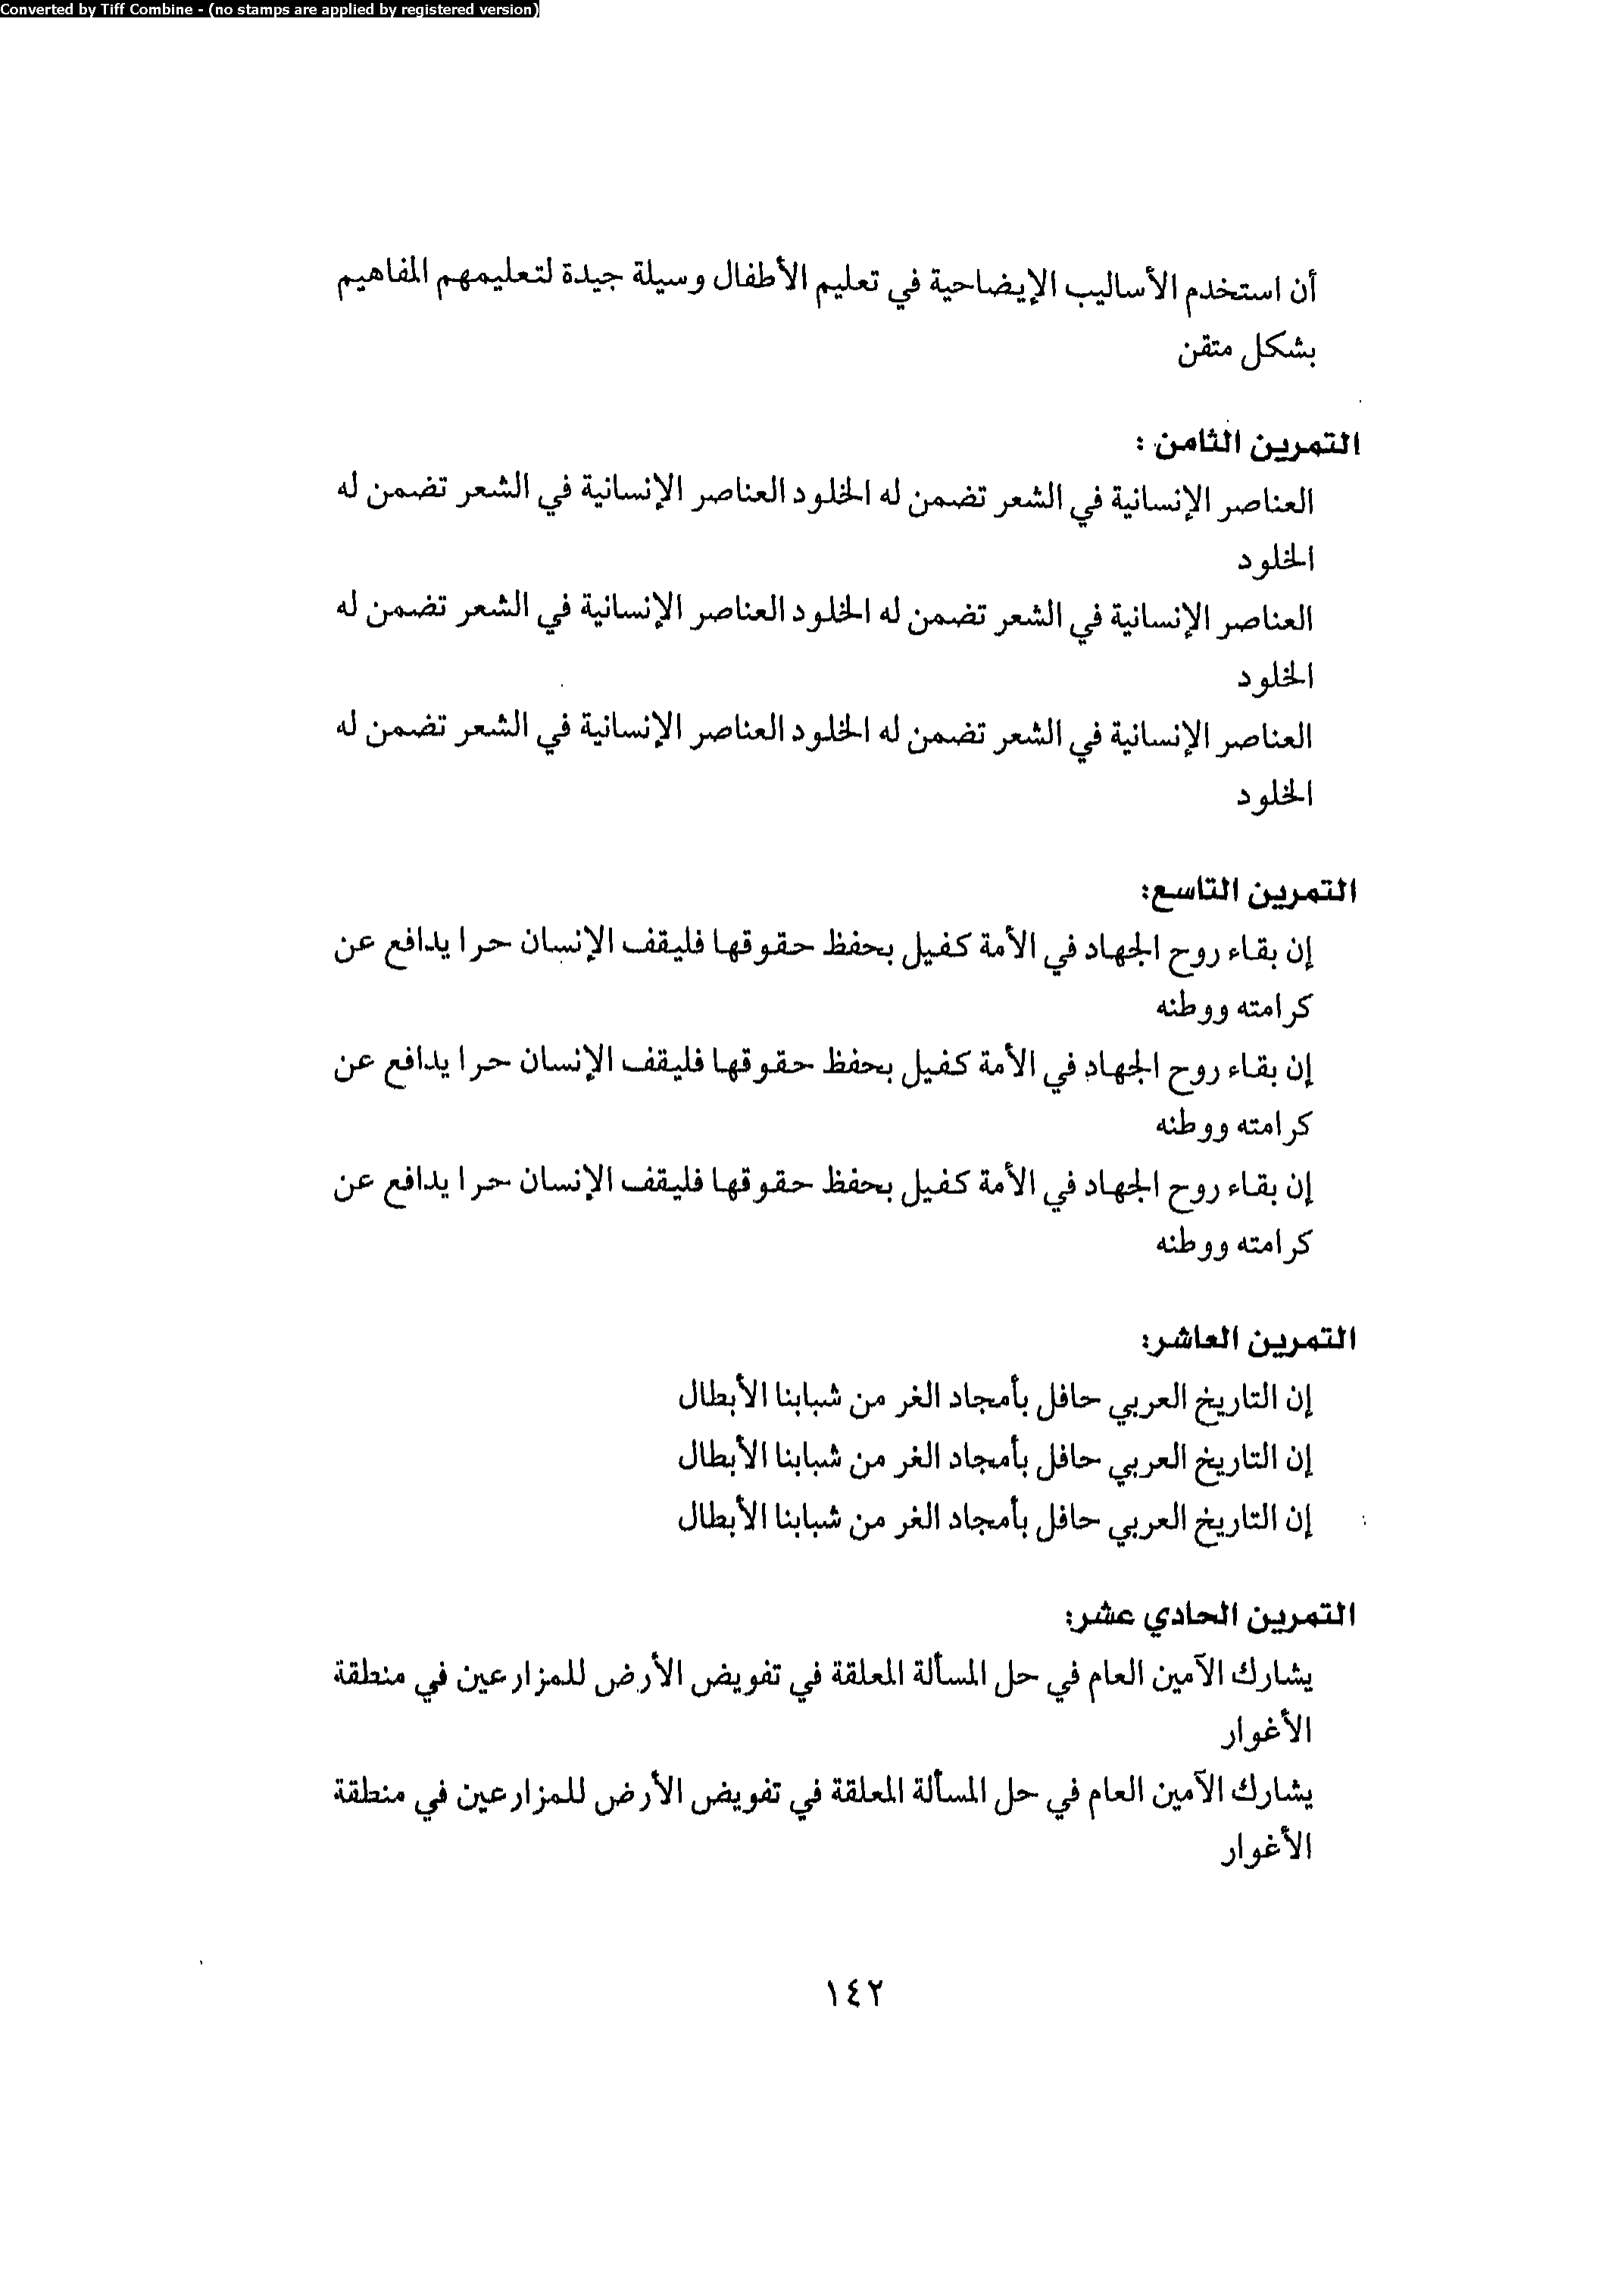 Converted by Tiff Combine - (no stamps are applied by registered version)
أن استخدم الأساليب الإيضاحية في تعليم الأطفال وسيلة جيدة لتعليمهم المفاهيم
بشكل متقن
التمرين الثامن :
العناصر الإنسانية في الشعر تضمن له الخلود العناصر الإنسانية في الشعر تضمن له
الخلود
العناصر الإنسانية في الشعر تضمن له الخلود العناصر الإنسانية في الشعر تضمن له
الخلود
العناصر الإنسانية في الشعر تضمن له الخلود العناصر الإنسانية في الشعر تضمن له
الخلود
التمرين التاسع:
إن بقاء روح الجهاد في الأمة كفيل بحفظ حقوقها فليقف الإنسان حرا يدافع عن
كرامته ووطنه
إن بقاء روح الجهاد في الأمة كفيل بحفظ حقوقها فليقف الإنسان حرا يدافع عن
كرامته ووطنه
إن بقاء روح الجهاد في الأمة كفيل بحفظ حقوقها فليقف الإنسان حرا يدافع عن
كرامته ووطنه
التمرين العاشر:
إن التاريخ العربي حافل بأمجاد الغر من شبابنا الأبطال
إن التاريخ العربي حافل بأمجاد الغر من شبابنا الأبطال
إن التاريخ العربي حافل بأمجاد الغر من شبابنا الأبطال
التمرين الحادي عشر:
يشارك الآمين العام في حل المسألة المعلقة في تفويض الأرض للمزارعين في منطقة
الأغوار
يشارك الآمين العام في حل المسألة المعلقة في تفويض الأرض للمزارعين في منطقة
الأغوار
١٤٢